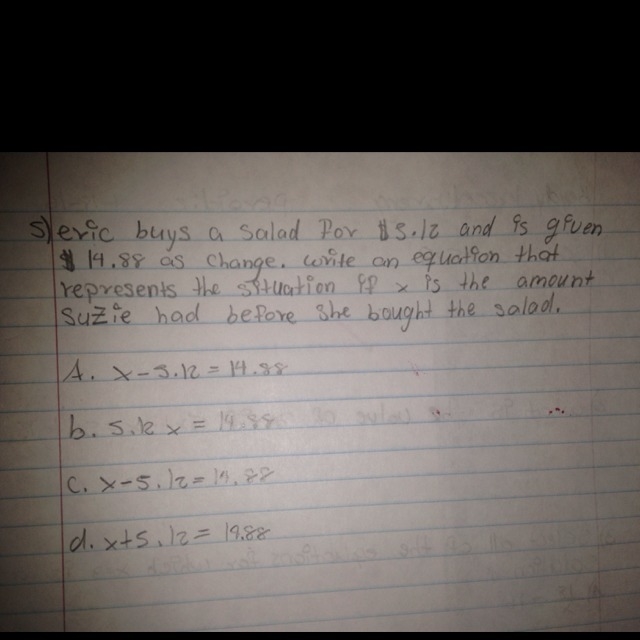 5) eric buys a salad for $5.12 and is given
$14.88 as change. write an equation that
represents the situation if x is the amount
suzie had before she bought the salad.
A. x-5.12=14.88
b. 5.12x=14.88
c. x-5.12=14.88
d. x+5.12=14.88